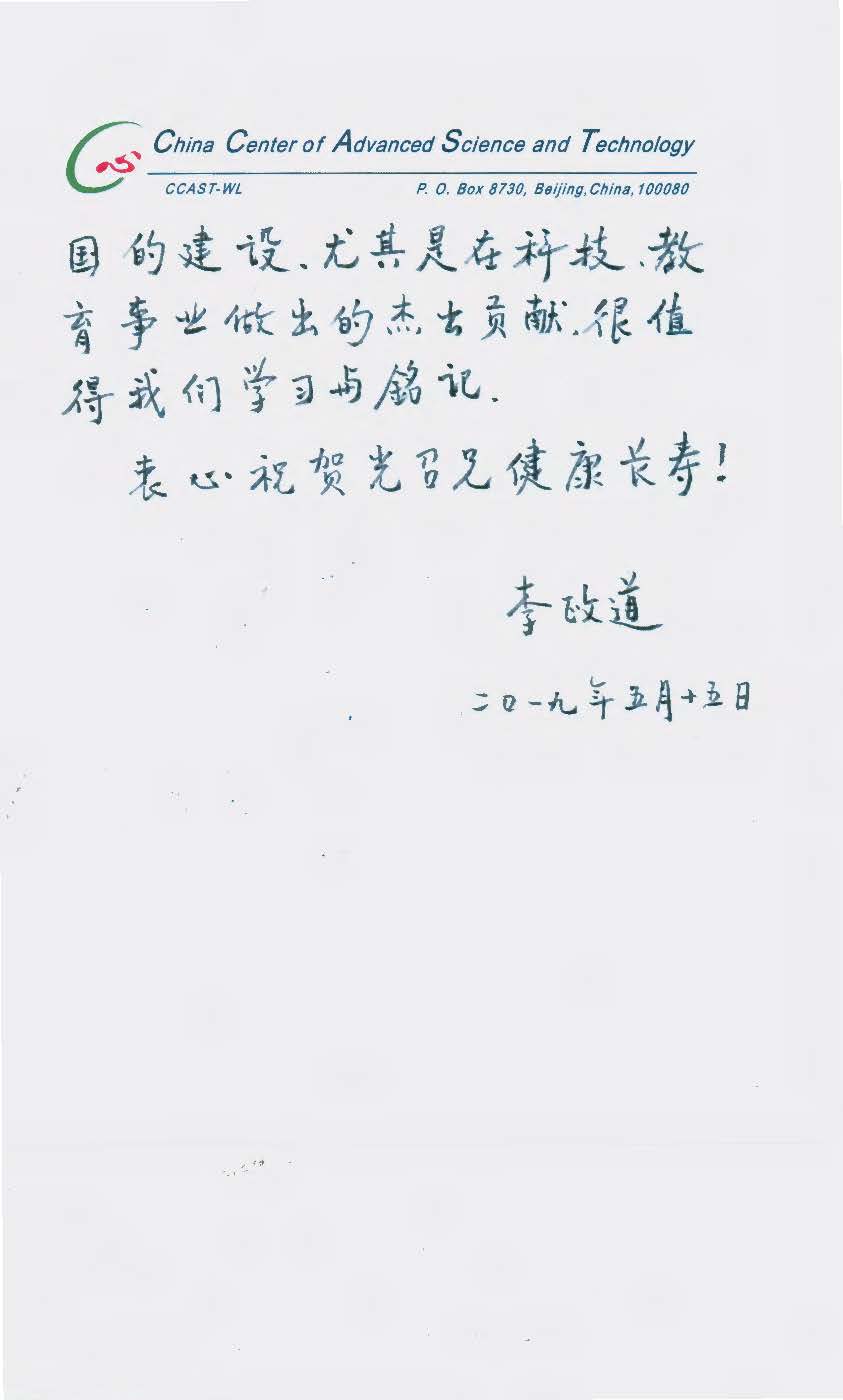 China Center of Advanced Science and Technology
CCAST-WL P. O. Box 8730, Beijing, China, 100080
国的建设、尤其是在科技、教
育事业做出的杰出贡献,很值
得我们学习与銘记.
衷心祝贺光召兄健康长寿!
李政道
二〇一九年五月十五日